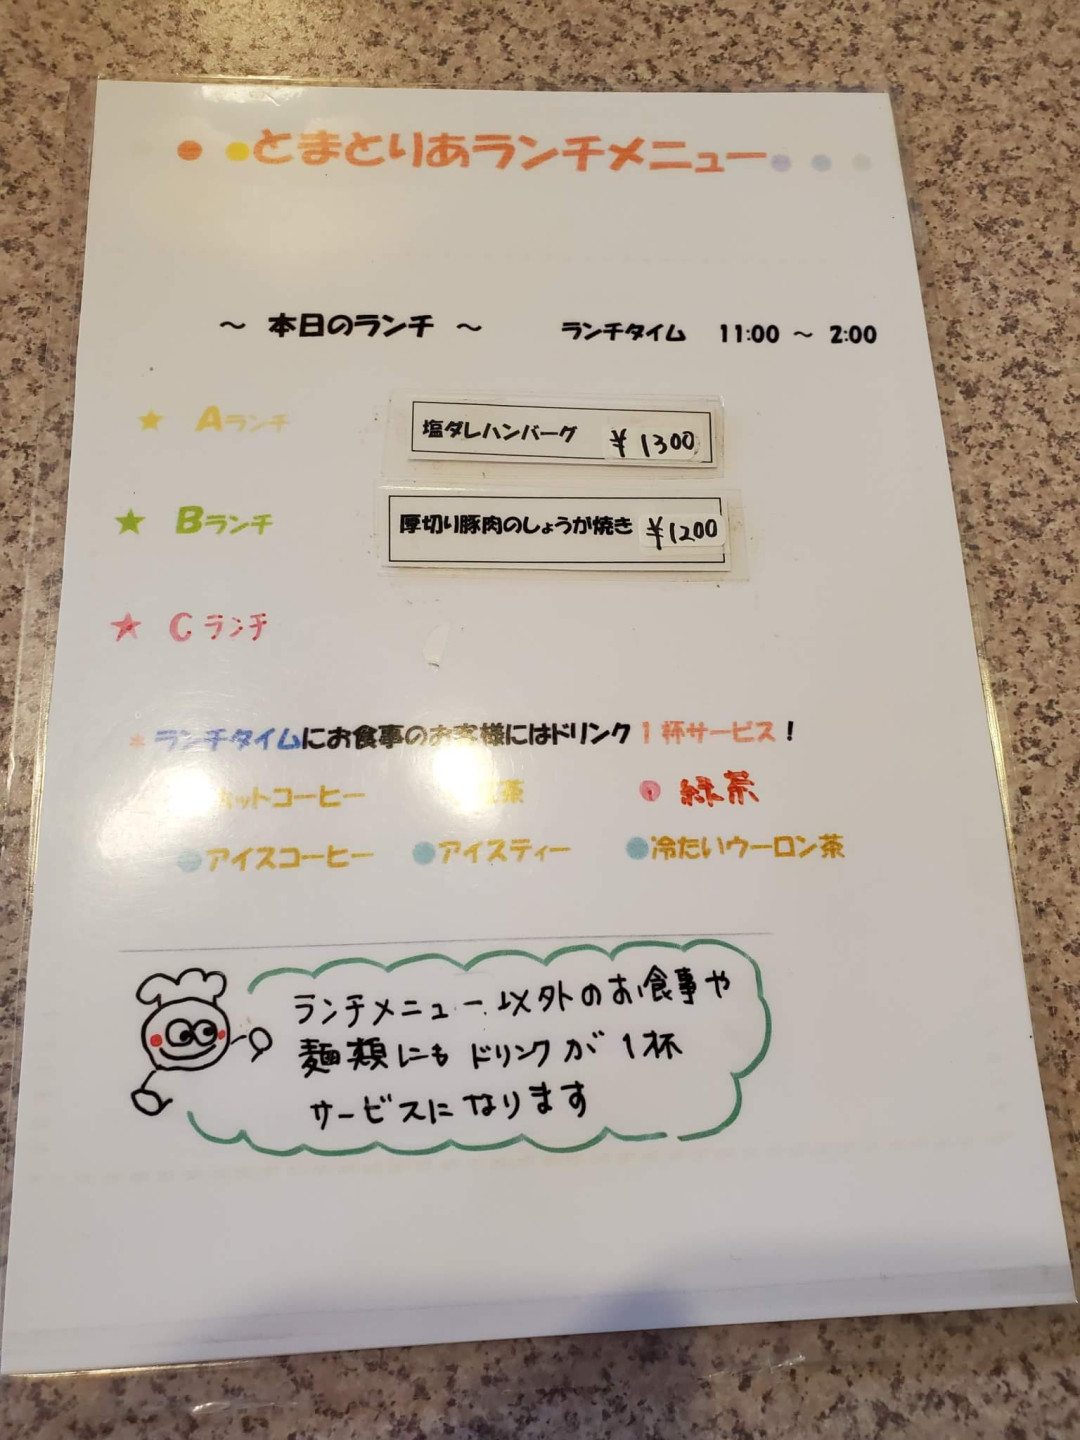 とまとりあランチメニュー
～ 本日のランチ ～ ランチタイム 11:00 ～ 2:00
★ Aランチ 塩ダレハンバーグ ¥1300
★ Bランチ 厚切り豚肉のしょうが焼き ¥1200
★ Cランチ
* ランチタイムにお食事のお客様にはドリンク1杯サービス！
ホットコーヒー 紅茶 緑茶
アイスコーヒー アイスティー 冷たいウーロン茶
ランチメニュー以外のお食事や
麺類にもドリンクが1杯
サービスになります